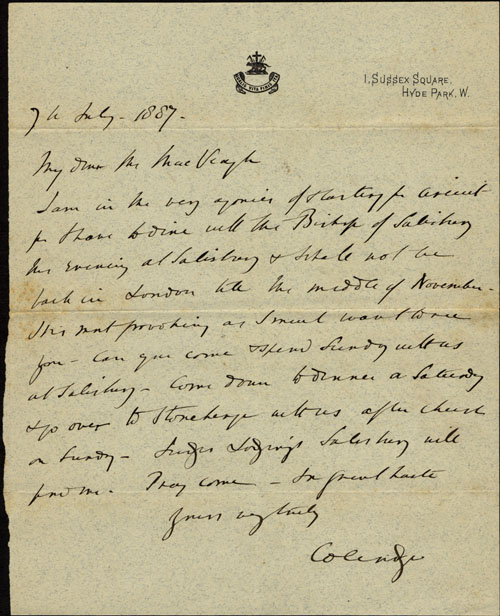 1, SUSSEX SQUARE,
HYDE PARK. W.
7th July - 1887.
My dear Mr MacVeagh
I am in the very agonies of starting for circuit
for I have to dine with the Bishop of Salisbury
this Evening at Salisbury & shall not be
back in London till the middle of November -
It is most provoking as I much want to see
you - Can you come & spend Sunday with us
at Salisbury - Come down to dinner on Saturday
& go over to Stonehenge with us after church
on Sunday - Judges Lodgings Salisbury will
find me. Pray come - In great haste
Yours very truly
Coleridge